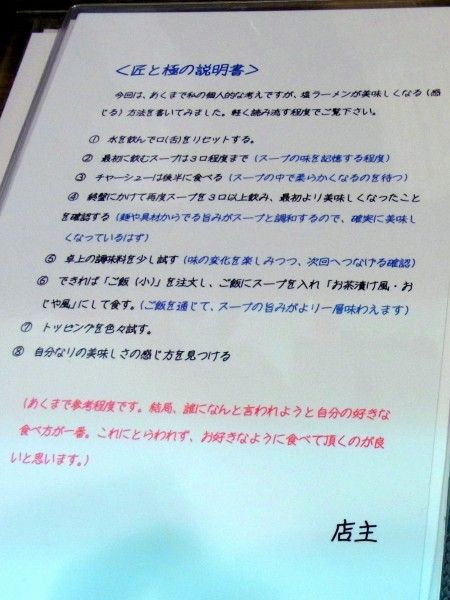 ＜匠と極の説明書＞
今回は、あくまで私の個人的な考えですが、塩ラーメンが美味しくなる（感
じる）方法を書いてみました。軽く読み流す程度でご覧下さい。
① 水を飲んで口(舌)をリセットする。
② 最初に飲むスープは３口程度まで（スープの味を記憶する程度）
③ チャーシューは後半に食べる（スープの中で柔らかくなるのを待つ）
④ 終盤にかけて再度スープを３口以上飲み、最初より美味しくなったこと
を確認する（麺や具材からでる旨みがスープと調和するので、確実に美味し
くなっているはず）
⑤ 卓上の調味料を少し試す（味の変化を楽しみつつ、次回へつなげる確認）
⑥ できれば「ご飯（小）」を注文し、ご飯にスープを入れ「お茶漬け風・お
じや風」にして食す。（ご飯を通じて、スープの旨みがより一層味わえます）
⑦ トッピングを色々試す。
⑧ 自分なりの美味しさの感じ方を見つける
（あくまで参考程度です。結局、誰になんと言われようと自分の好きな
食べ方が一番。これにとらわれず、お好きなように食べて頂くのが良
いと思います。）
店主